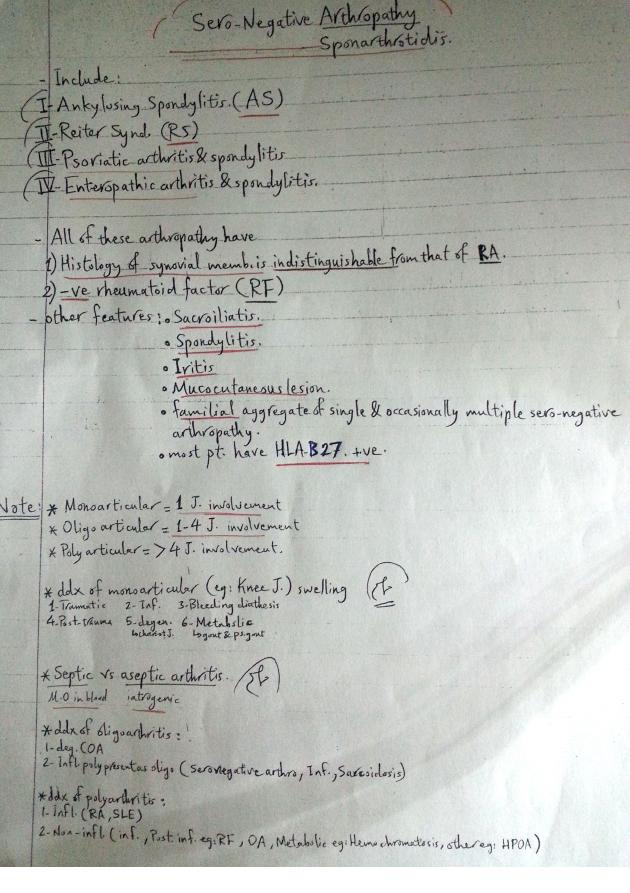 Sero-Negative Arthropathy
Sponarthrotidis.
- Include:
I- Ankylusing Spondylitis. (AS)
II- Reiter Synd. (RS)
III- Psoriatic arthritis & spondylitis
IV- Enteropathic arthritis & spondylitis.
- All of these arthropathy have
1) Histology of synovial memb. is indistinguishable from that of RA.
2) -ve rheumatoid factor (RF)
- other features: • Sacroiliatis.
• Spondylitis.
• Iritis
• Mucocutaneous lesion.
• familial aggregate of single & occasionally multiple sero-negative
arthropathy.
• most pt. have HLA-B27. +ve.
Note: * Monoarticular = 1 J. involvement
* Oligo articular = 1-4 J. involvement
* Poly articular = >4 J. involvement.
* ddx of monoarticular (eg: Knee J.) swelling
1- Traumatic 2- Inf. 3- Bleeding diathesis
4. Post-trauma 5- degen. 6- Metabolic
↳ gout & ps. gout
* Septic vs aseptic arthritis.
M.O in blood iatrogenic
* ddx of oligoarthritis:
1- deg. COA
2- Infl poly present as oligo (Seronegative arthro, Inf., Sarcoidosis)
* ddx of polyarthritis:
1- Infl. (RA, SLE)
2- Non-infl (inf., Post inf. eg: RF, OA, Metabolic eg: Hemochromatosis, other eg: HPOA)